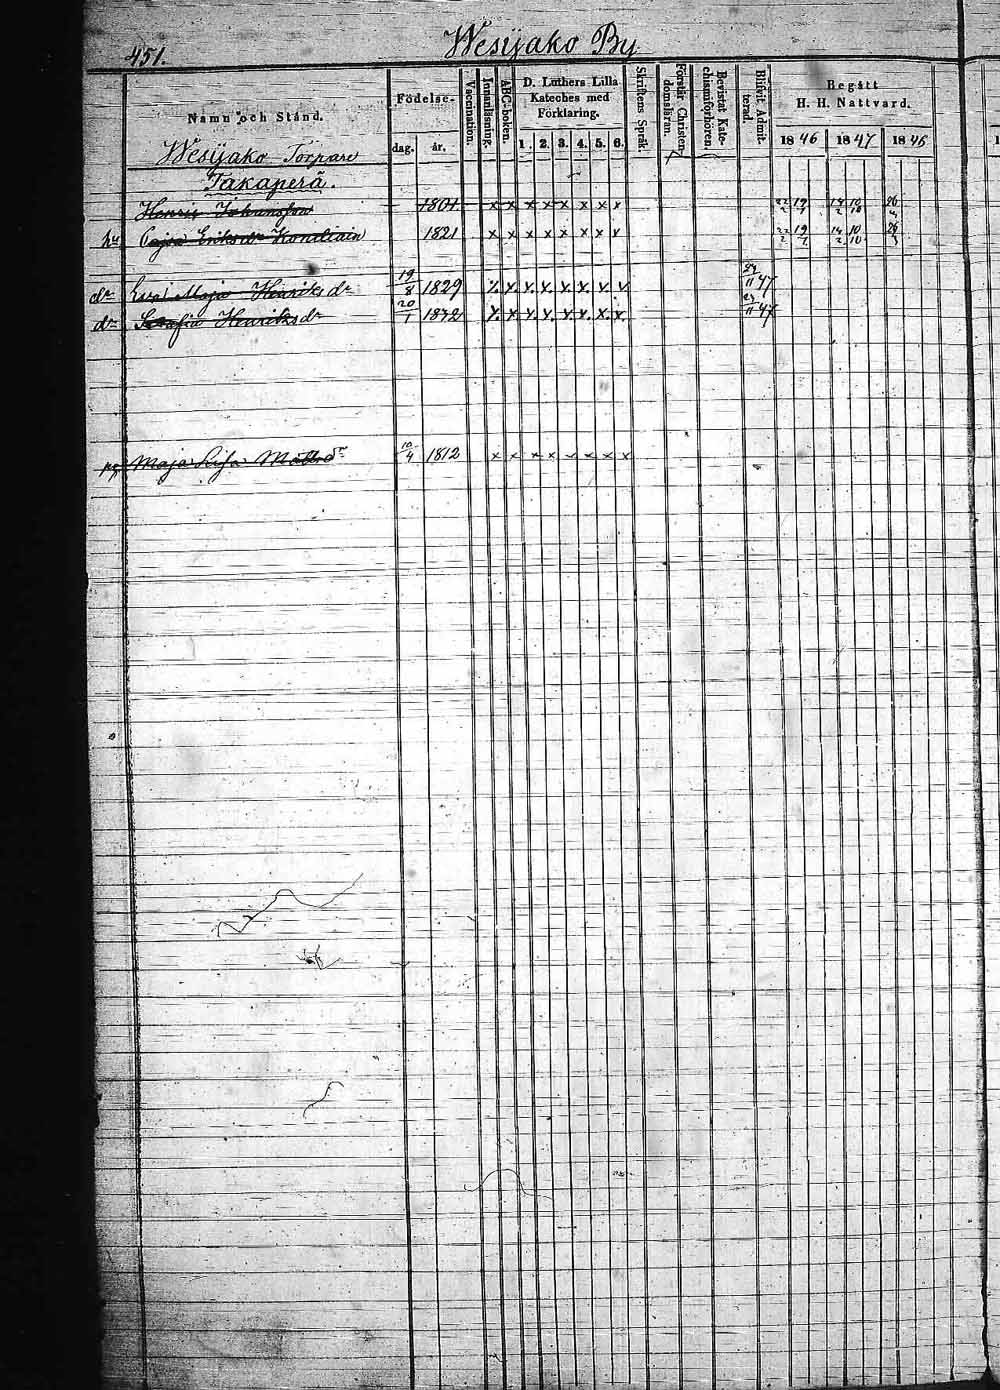 451. Wesijako By
Namn och Stånd.
Födelse-
dag. år.
Vaccination.
Innanläsning.
ABC-boken.
D. Luthers Lilla
Kateches med
Förklaring.
1. 2. 3. 4. 5. 6.
Skriftens Språk.
Förstår Christendomsläran.
Bevistat Kate-
chismiförhören.
Blifvit Admit-
terad.
Begått
H. H. Nattvard.
1846 1847 1846
Wesijako Torpare
Takaperä.
Henric Johansson 1801 x x x x x x x x
hu Cajsa Eriksdr 1821 x x x x x x x x
dr Eva Maja Henriksdr 19/8 1829 x x x x x x x x 47
dr Serafia Henriksdr 20/1 1832 x x x x x x x x 47
Maja Lisa Mattsdr 10/4 1812 x x x x x x x x